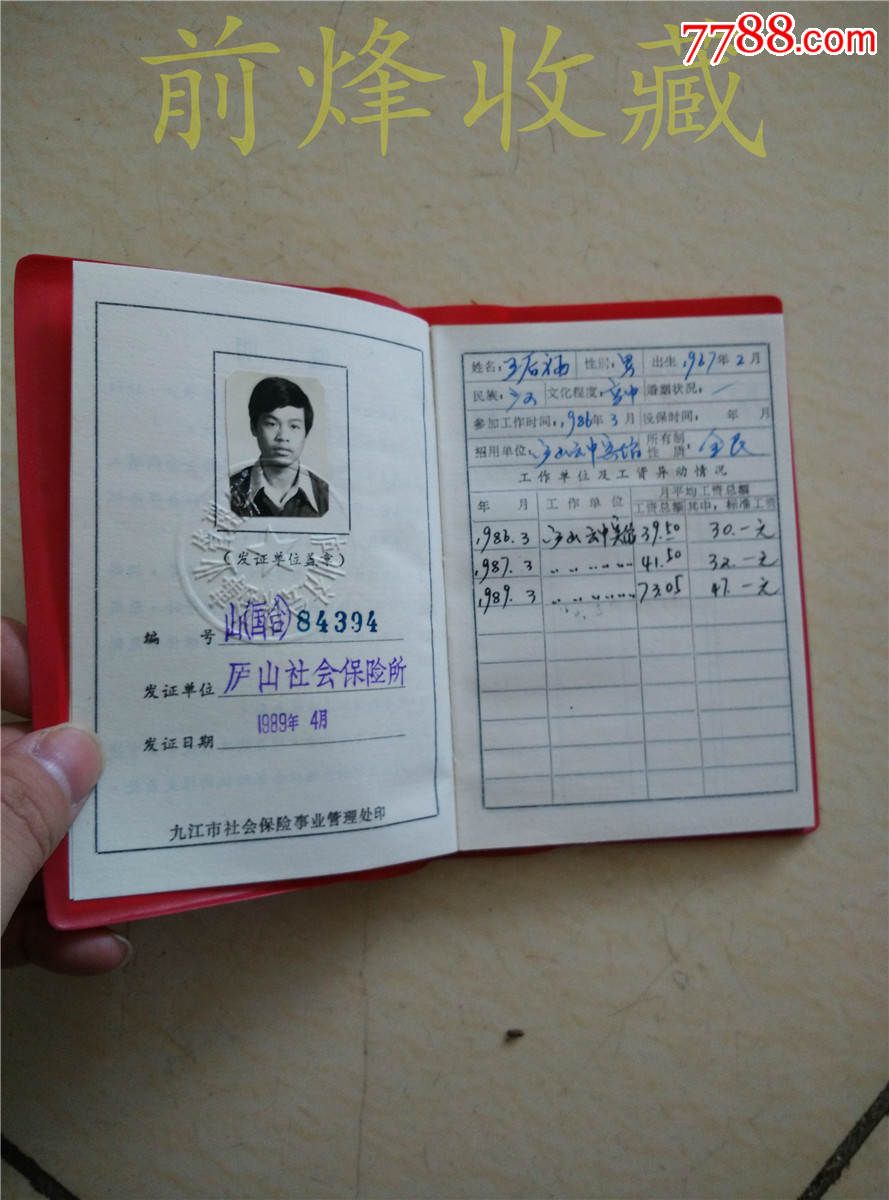 7788.com
前烽收藏
（发证单位盖章）
编 号 山(国合)84394
发证单位 庐山社会保险所
发证日期 1989年 4月
九江市社会保险事业管理处印
姓名： 性别：男 出生：1967年2月
民族：汉 文化程度：高中 婚姻状况：一
参加工作时间：1986年3月 投保时间： 年 月
招用单位：庐山云中宾馆 所有制性质：全民
工作单位及工资异动情况
年 月 工作单位 月平均工资总额
工资总额 其中：标准工资
1986.3 庐山云中宾馆 39.50 30.一元
1987.3 〃 〃 〃 〃 〃 〃 41.50 32.一元
1989.3 〃 〃 〃 〃 〃 〃 73.05 47.一元